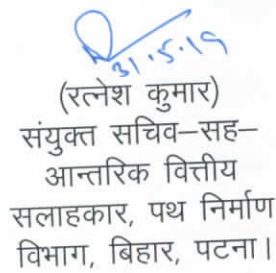 31.5.19
(रत्नेश कुमार)
संयुक्त सचिव–सह–
आन्तरिक वित्तीय
सलाहकार, पथ निर्माण
विभाग, बिहार, पटना।